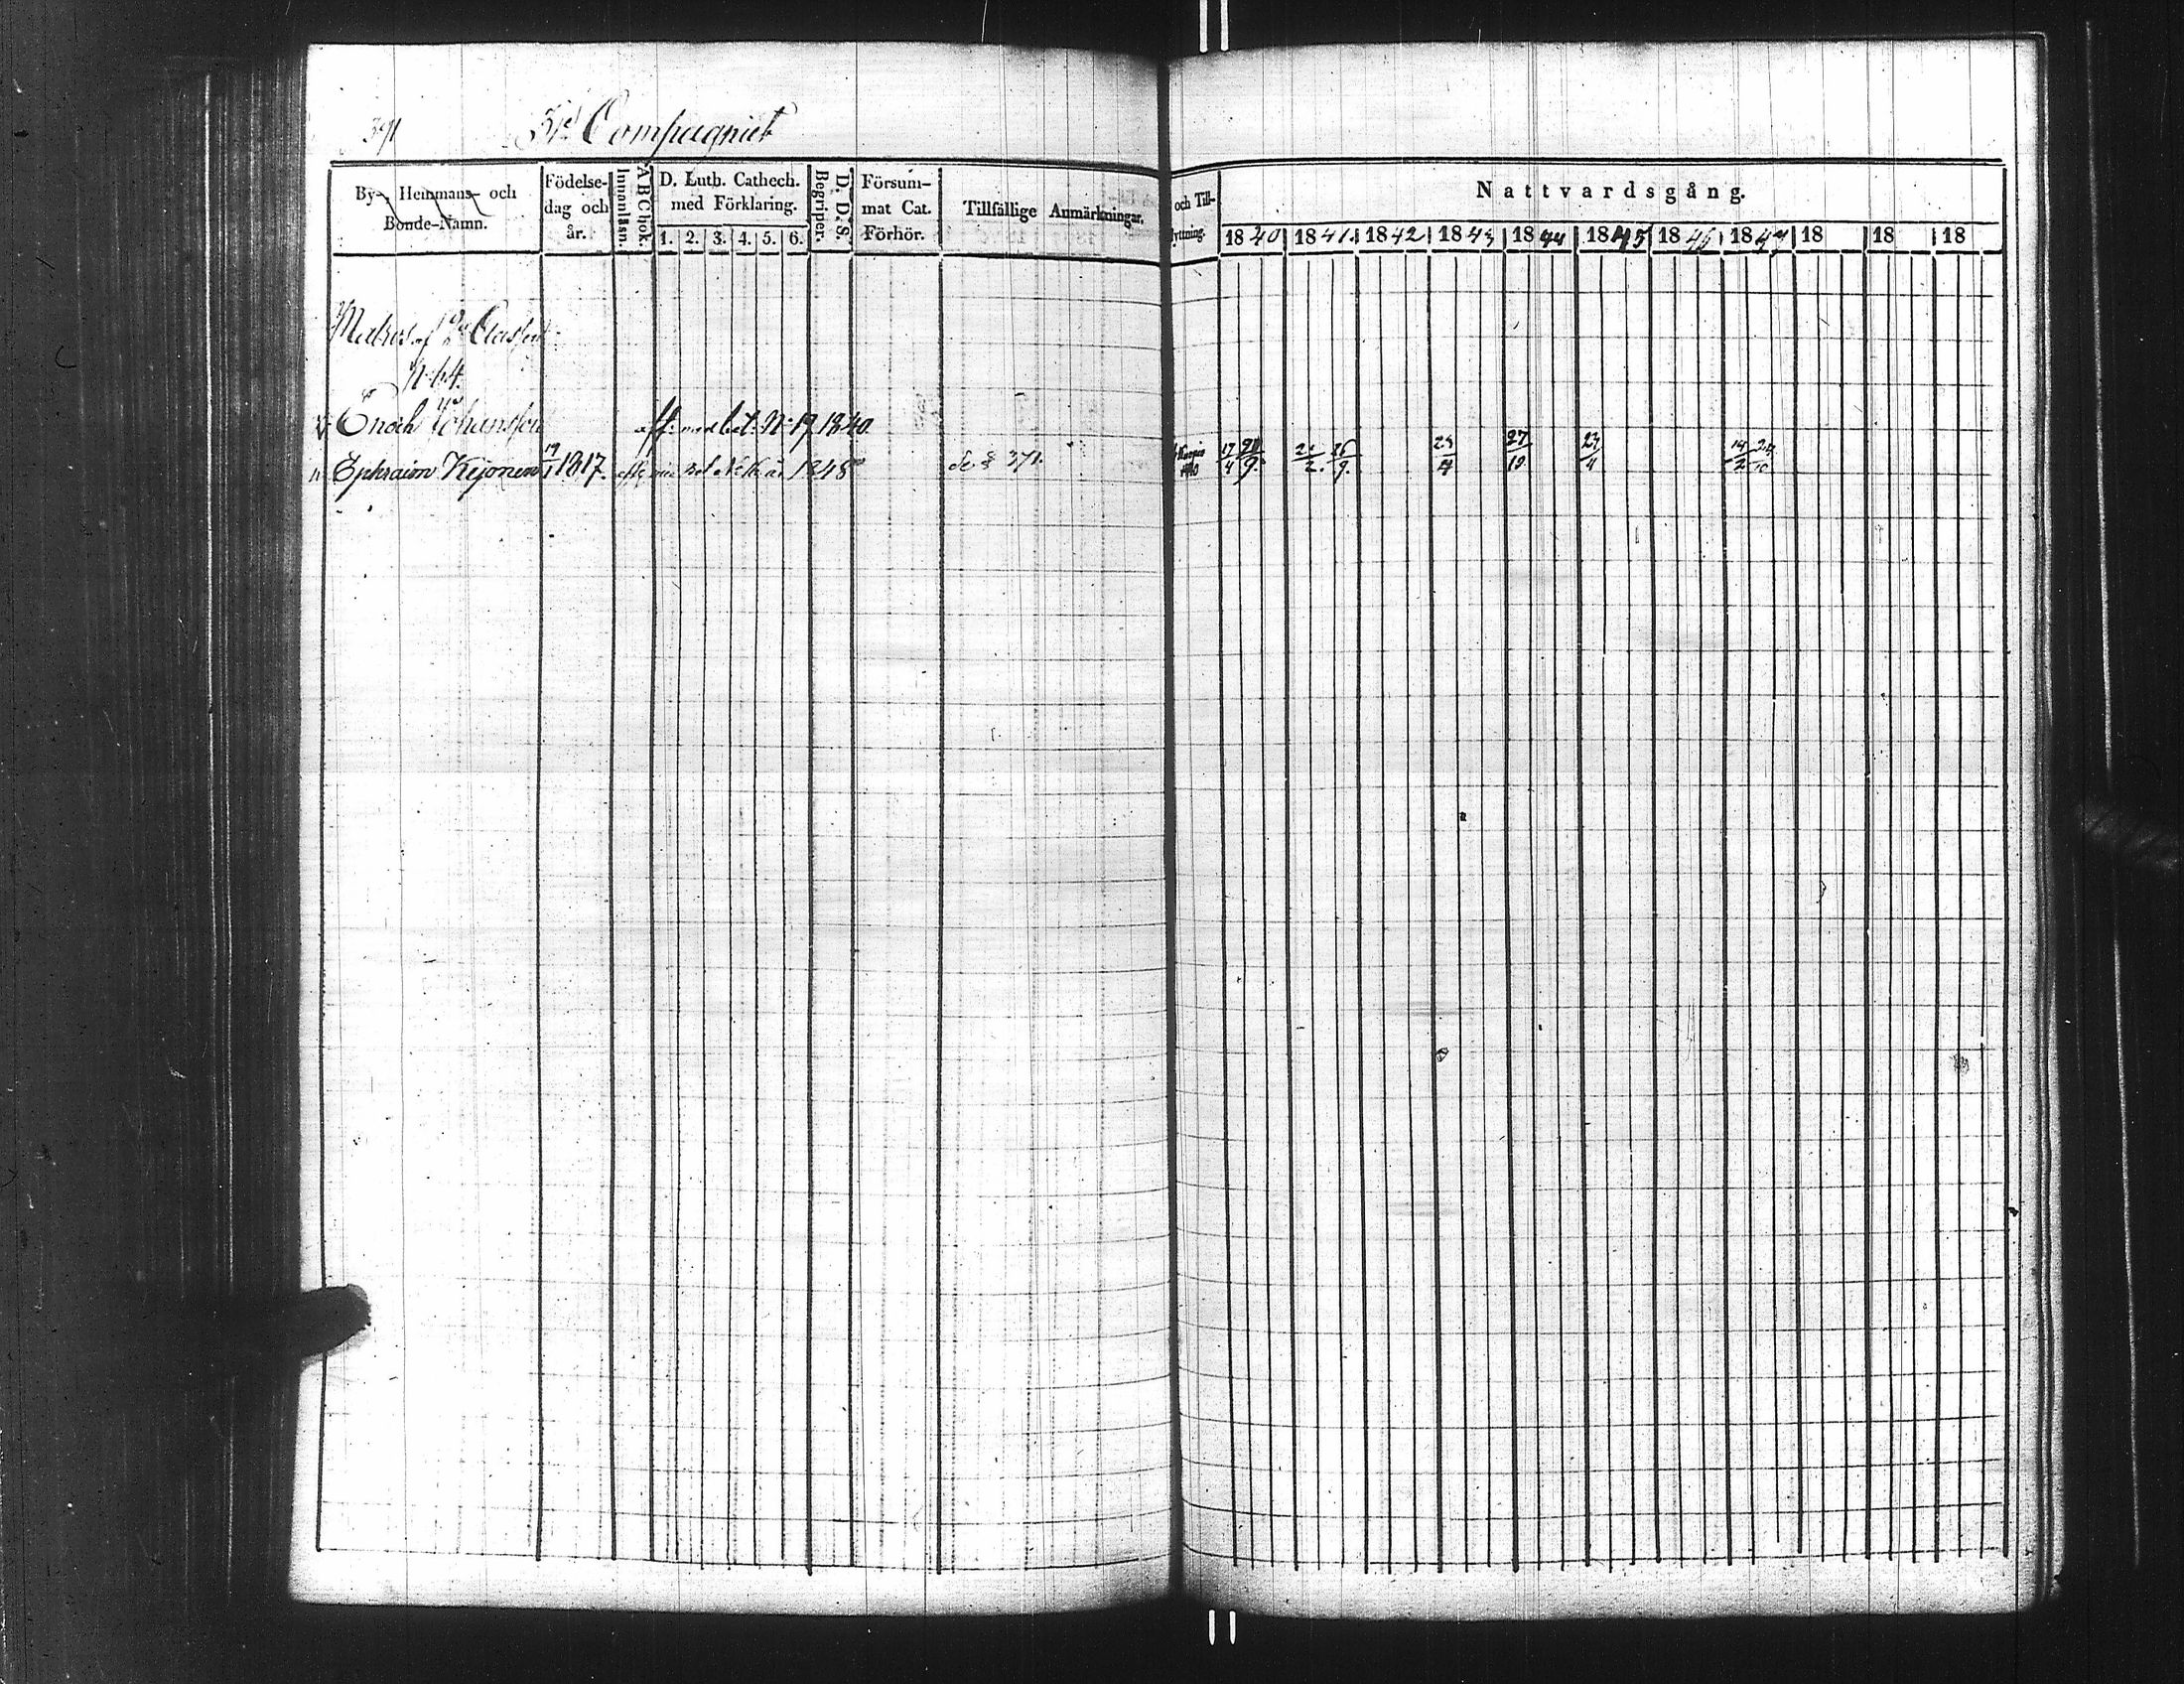 391
Compagniet
By-, Hemmans- och Bonde-Namn.
Födelse-dag och år.
Innanläsn.
A B C bok.
D. Luth. Cathech. med Förklaring.
1. 2. 3. 4. 5. 6.
Begriper.
D. D. S.
Försum-mat Cat. Förhör.
Tillfällige Anmärkningar.
och Till-
flyttning.
Nattvardsgång.
1840 1841 1842 1843 1844 1845 1846 1847 18 18 18
Matros af 2a Classen
N 64.
Enoch Johansson aff. med bet. N 19 1840.
Ephraim Kejonen 1817. 1848 se 371. 1840 17/4 20/9 26/9 27/10 23/4 14/2 24/10